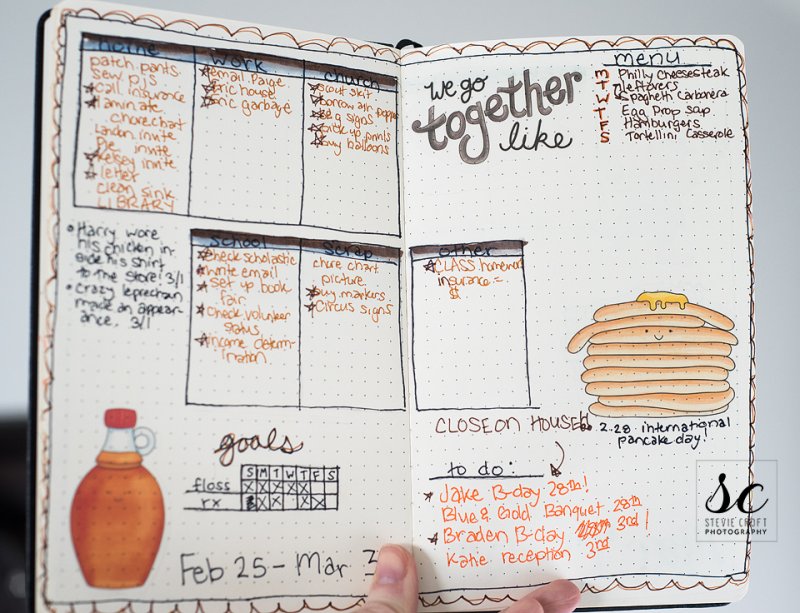 home
patch pants
sew pjs
call insurance
laminate
chore chart
Landon invite
Pie invite
Kelsey invite
letter
clean sink
LIBRARY
work
email Paige
house
garbage
church
scout skit
borrow air popper
signs
pick up prints
buy balloons
• Harry wore
his chicken in-
side his shirt
to the store! 3/1
• crazy leprechan
made an appear-
ance. 3/1
school
check scholastic
write email
set up book
fair
Check volunteer
status
income determ-
ination
scrap
chore chart
picture
buy markers
Circus signs
goals
S M T W T F S
floss X X X X X
rx X X X X
Feb 25 - Mar 3
we go
together
like
menu
M Philly Cheesesteak
T leftovers
W Spaghetti Carbonara
T Egg Drop Soup
F Hamburgers
S Tortellini Casserole
other
CLASS homework
insurance =
$
2-28 international
pancake day!
CLOSE ON HOUSE!!
to do:
Jake B-day 28th!
Blue & Gold Banquet 28th
Braden B-day 3rd!
Katie reception 3rd
SC
STEVIE CROFT
PHOTOGRAPHY